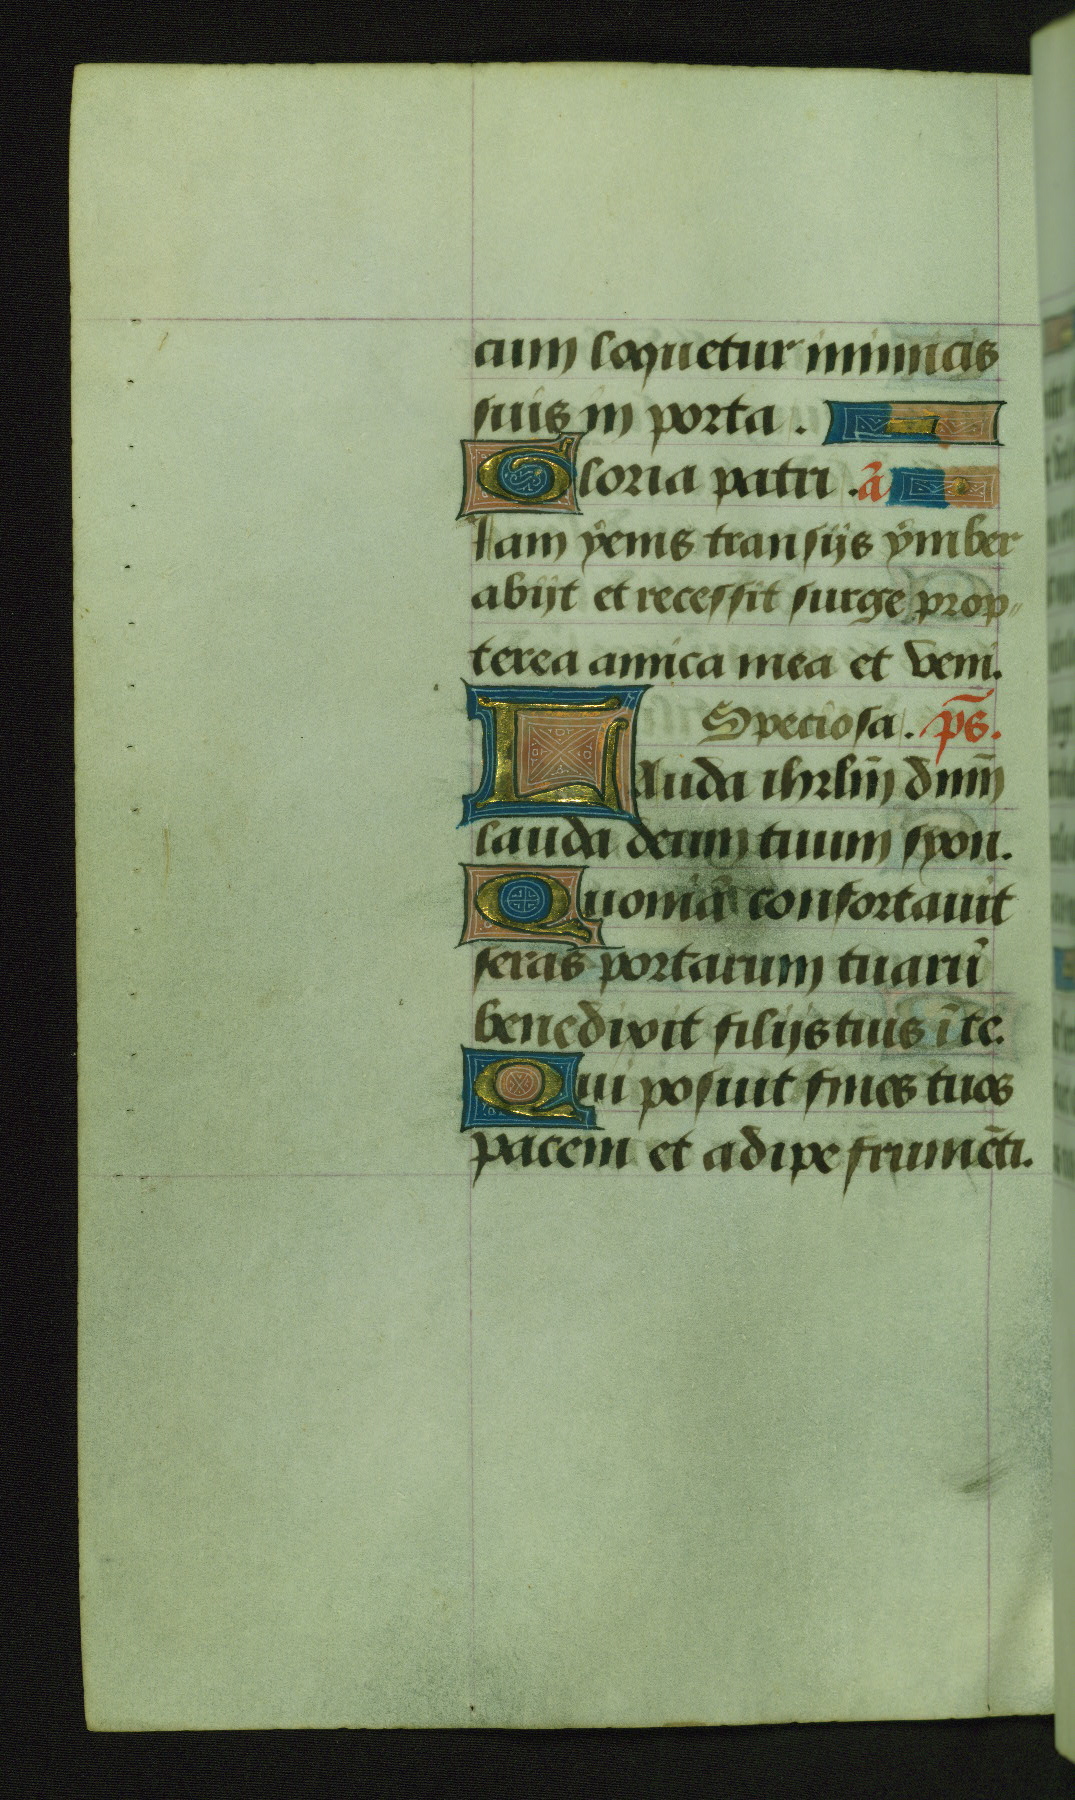 cum loquetur inimicis
suis in porta .
Gloria patri . ā
Iam yems transijs ymber
abijt et recessit surge prop„
terea amica mea et veni.
Speciosa . ps̄.
LAuda ihrlm̄ dnm̄
lauda deum tuum syon.
Quoniā confortauit
seras portarum tuarū
benedixit filijs tuis ī te.
Qui posuit fines tuos
pacem et adipe frumēti.